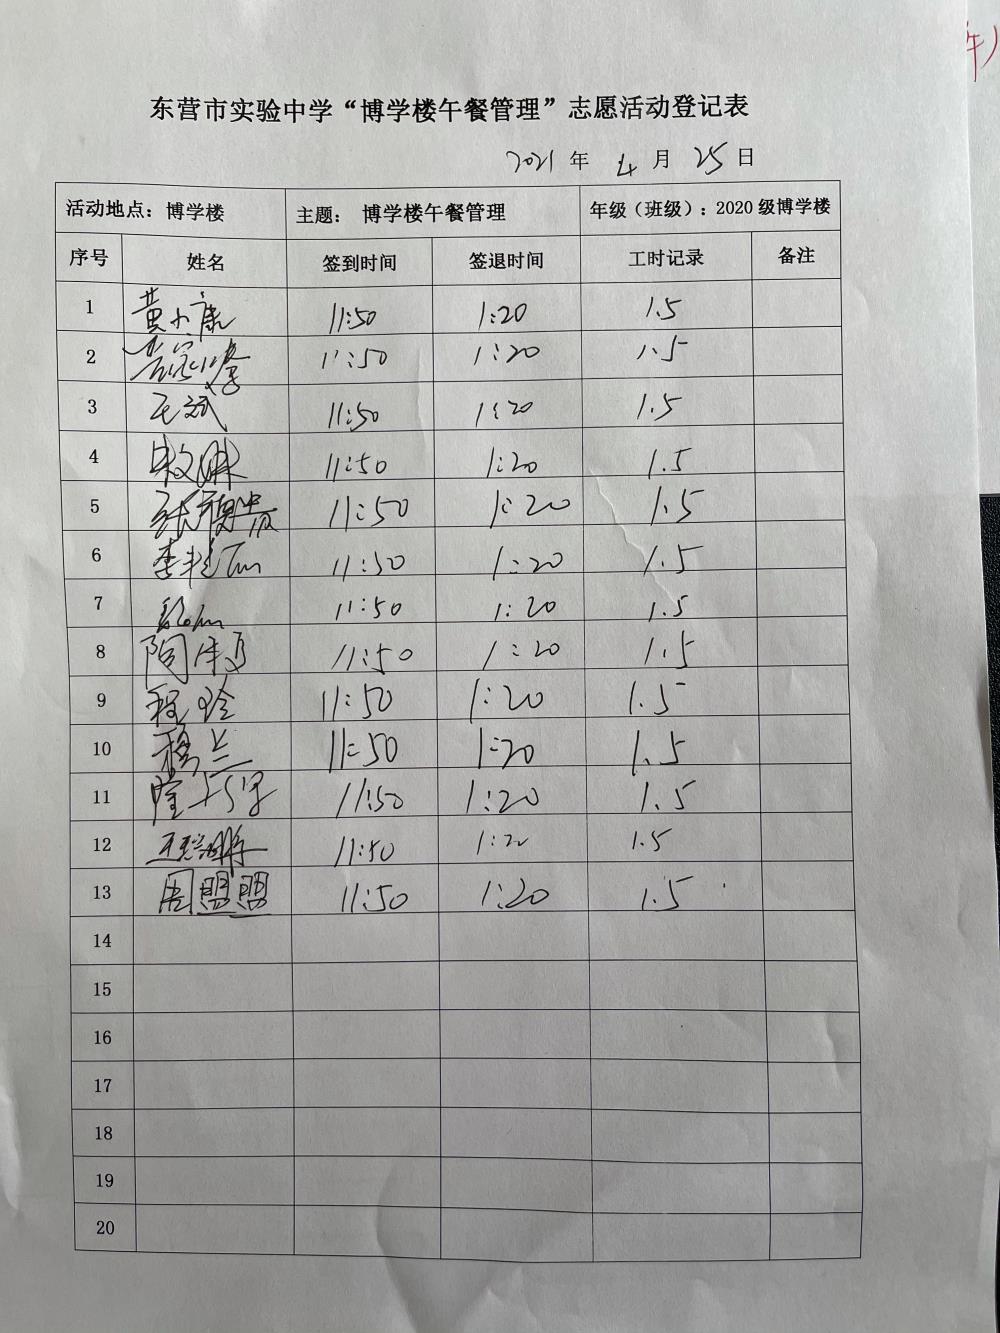 东营市实验中学“博学楼午餐管理”志愿活动登记表
2021 年 4 月 25 日
活动地点：博学楼 主题： 博学楼午餐管理 年级（班级）：2020 级博学楼
序号 姓名 签到时间 签退时间 工时记录 备注
1 黄小康 11:50 1:20 1.5
2 11:50 1:20 1.5
3 王斌 11:50 1:20 1.5
4 11:50 1:20 1.5
5 11:50 1:20 1.5
6 11:50 1:20 1.5
7 11:50 1:20 1.5
8 11:50 1:20 1.5
9 程玲 11:50 1:20 1.5
10 11:50 1:20 1.5
11 11:50 1:20 1.5
12 11:50 1:20 1.5
13 周盟盟 11:50 1:20 1.5
14
15
16
17
18
19
20